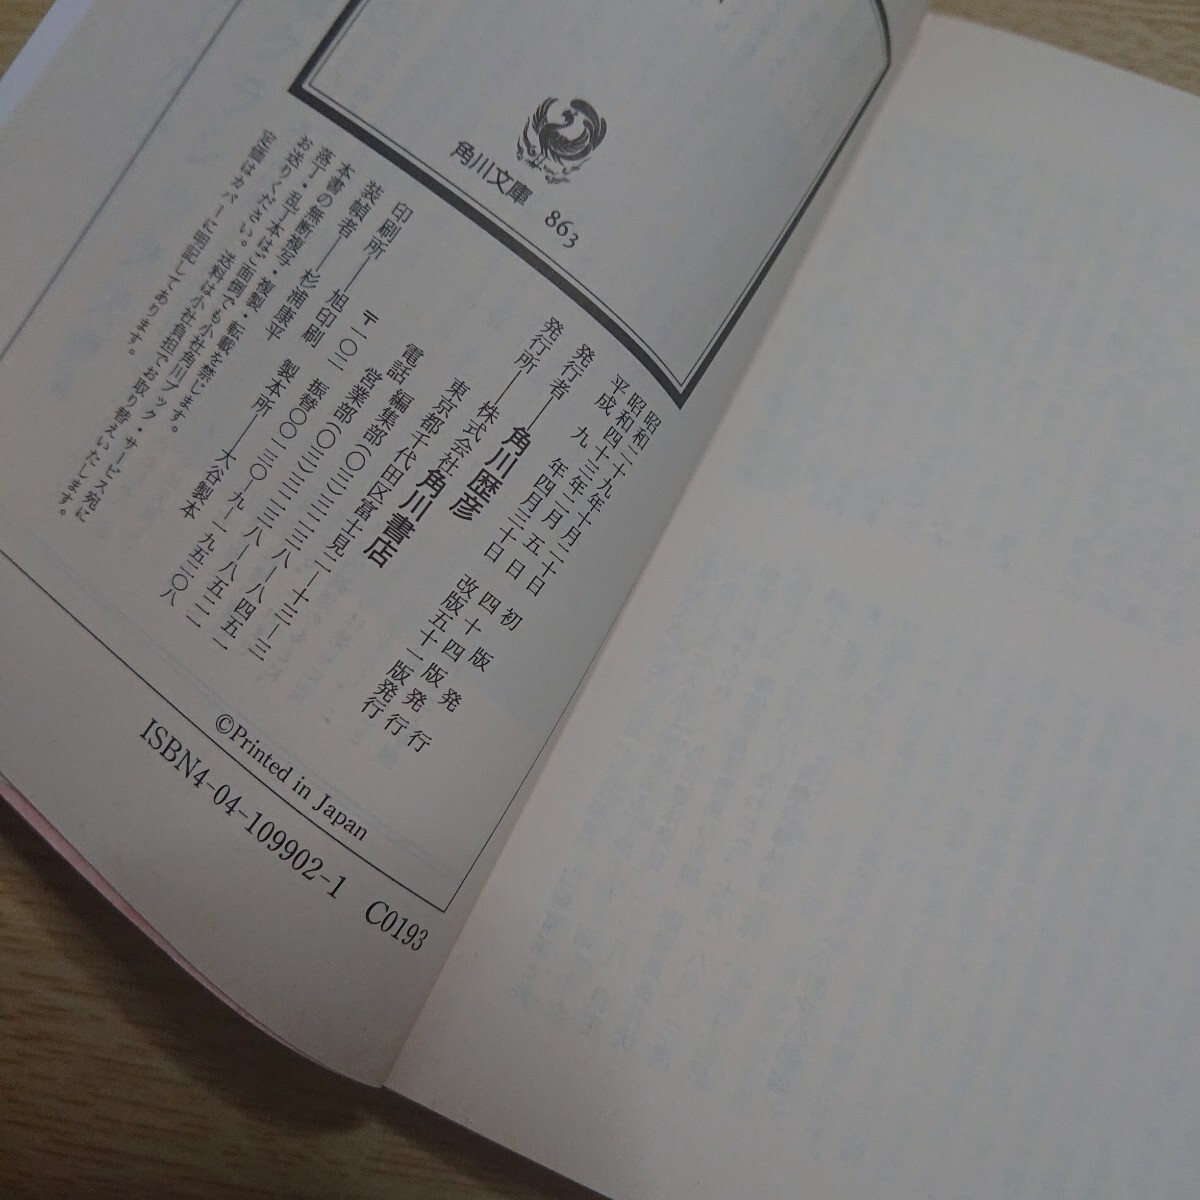 角川文庫 863
昭和二十九年十月二十日 初版発行
昭和四十三年二月五日 四十四版発行
平成九年四月三十日 改版五十一版発行
発行者——角川歴彦
発行所——株式会社 角川書店
東京都千代田区富士見二—十三—三
電話 編集部(〇三)三二三八—八四五一
営業部(〇三)三二三八—八五二一
〒一〇二 振替〇〇一三〇—九—一九五二〇八
印刷所——旭印刷 製本所——大谷製本
装幀者——杉浦康平
本書の無断複写・複製・転載を禁じます。
落丁・乱丁本はご面倒でも小社角川ブック・サービス宛に
お送りください。送料は小社負担でお取り替えいたします。
定価はカバーに明記してあります。
©Printed in Japan
ISBN4-04-109902-1 C0193